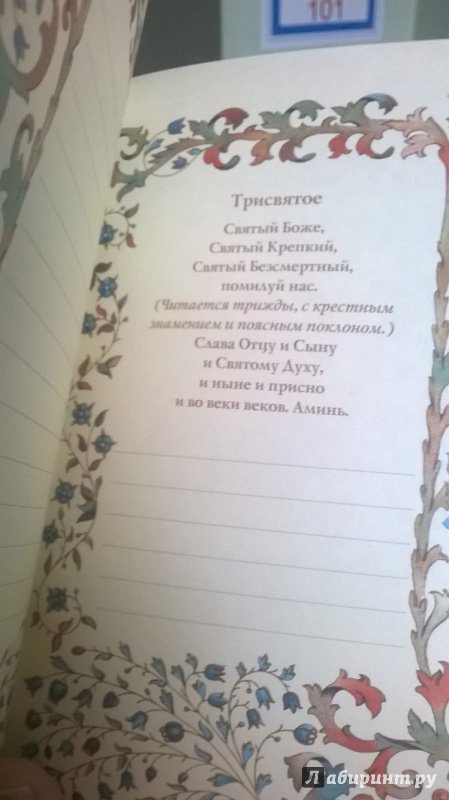 101
Трисвятое
Святый Боже,
Святый Крепкий,
Святый Безсмертный,
помилуй нас.
(Читается трижды, с крестным
знамением и поясным поклоном.)
Слава Отцу и Сыну
и Святому Духу,
и ныне и присно
и во веки веков. Аминь.
Лабиринт.ру